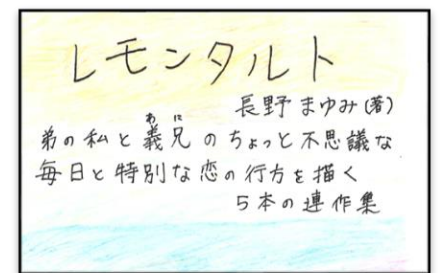 レモンタルト
長野まゆみ(著)
わに
弟の私と義兄のちょっと不思議な
毎日と特別な恋の行方を描く
5本の連作集